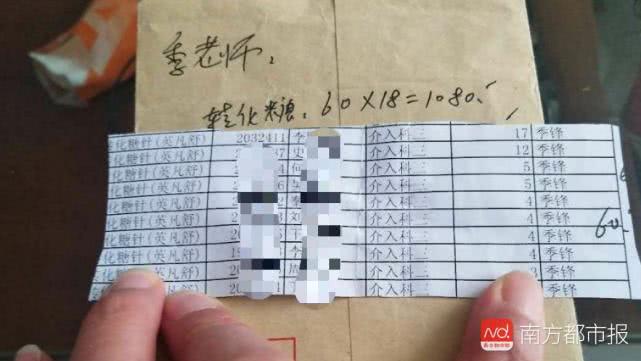 季老师，
转化糖：60×18=1080.
化糖针(英凡舒) 2032411 李 介入科三 17 季锋
化糖针(英凡舒) 37 史 介入科三 12 季锋
化糖针(英凡舒) 4 何 介入科三 5 季锋
化糖针(英凡舒) 6 介入科三 5 季锋
化糖针(英凡舒) 2 李 介入科三 4 季锋
化糖针(英凡舒) 3 刘 介入科三 4 季锋
化糖针(英凡舒) 介入科三 4 季锋
化糖针(英凡舒) 李 介入科三 4 季锋
化糖针(英凡舒) 周 介入科三 3 季锋
化糖针(英凡舒) 介入科三 季锋
60.
南方都市报
南方都市报